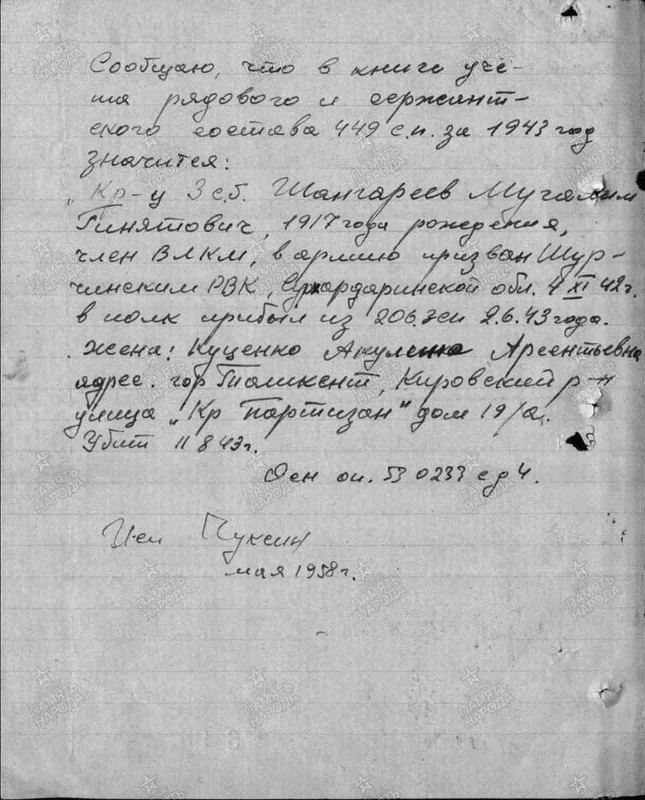 Сообщаю, что в книге уче-
та рядового и сержант-
ского состава 449 с.п. за 1943 год
значится:
„Кр-ц 3 с.б. Шангареев Мугалим
Гинятович, 1917 года рождения,
член ВЛКМ, в армию призван Шур-
чинским РВК, Сурхардаринской обл. 4 XI 42 г.
в полк прибыл из 206. зсп 2.6.43 года.
жена: Куценко Акулина Арсентьевна
адрес. гор Ташкент, Кировский р-н
улица „Кр Партизан" дом 19/а.
Убит 11 8 43 г.
Осн оп. 53 0233 с д 4.
Исп Пуксин
мая 1958 г.
ПАМЯТЬ НАРОДА